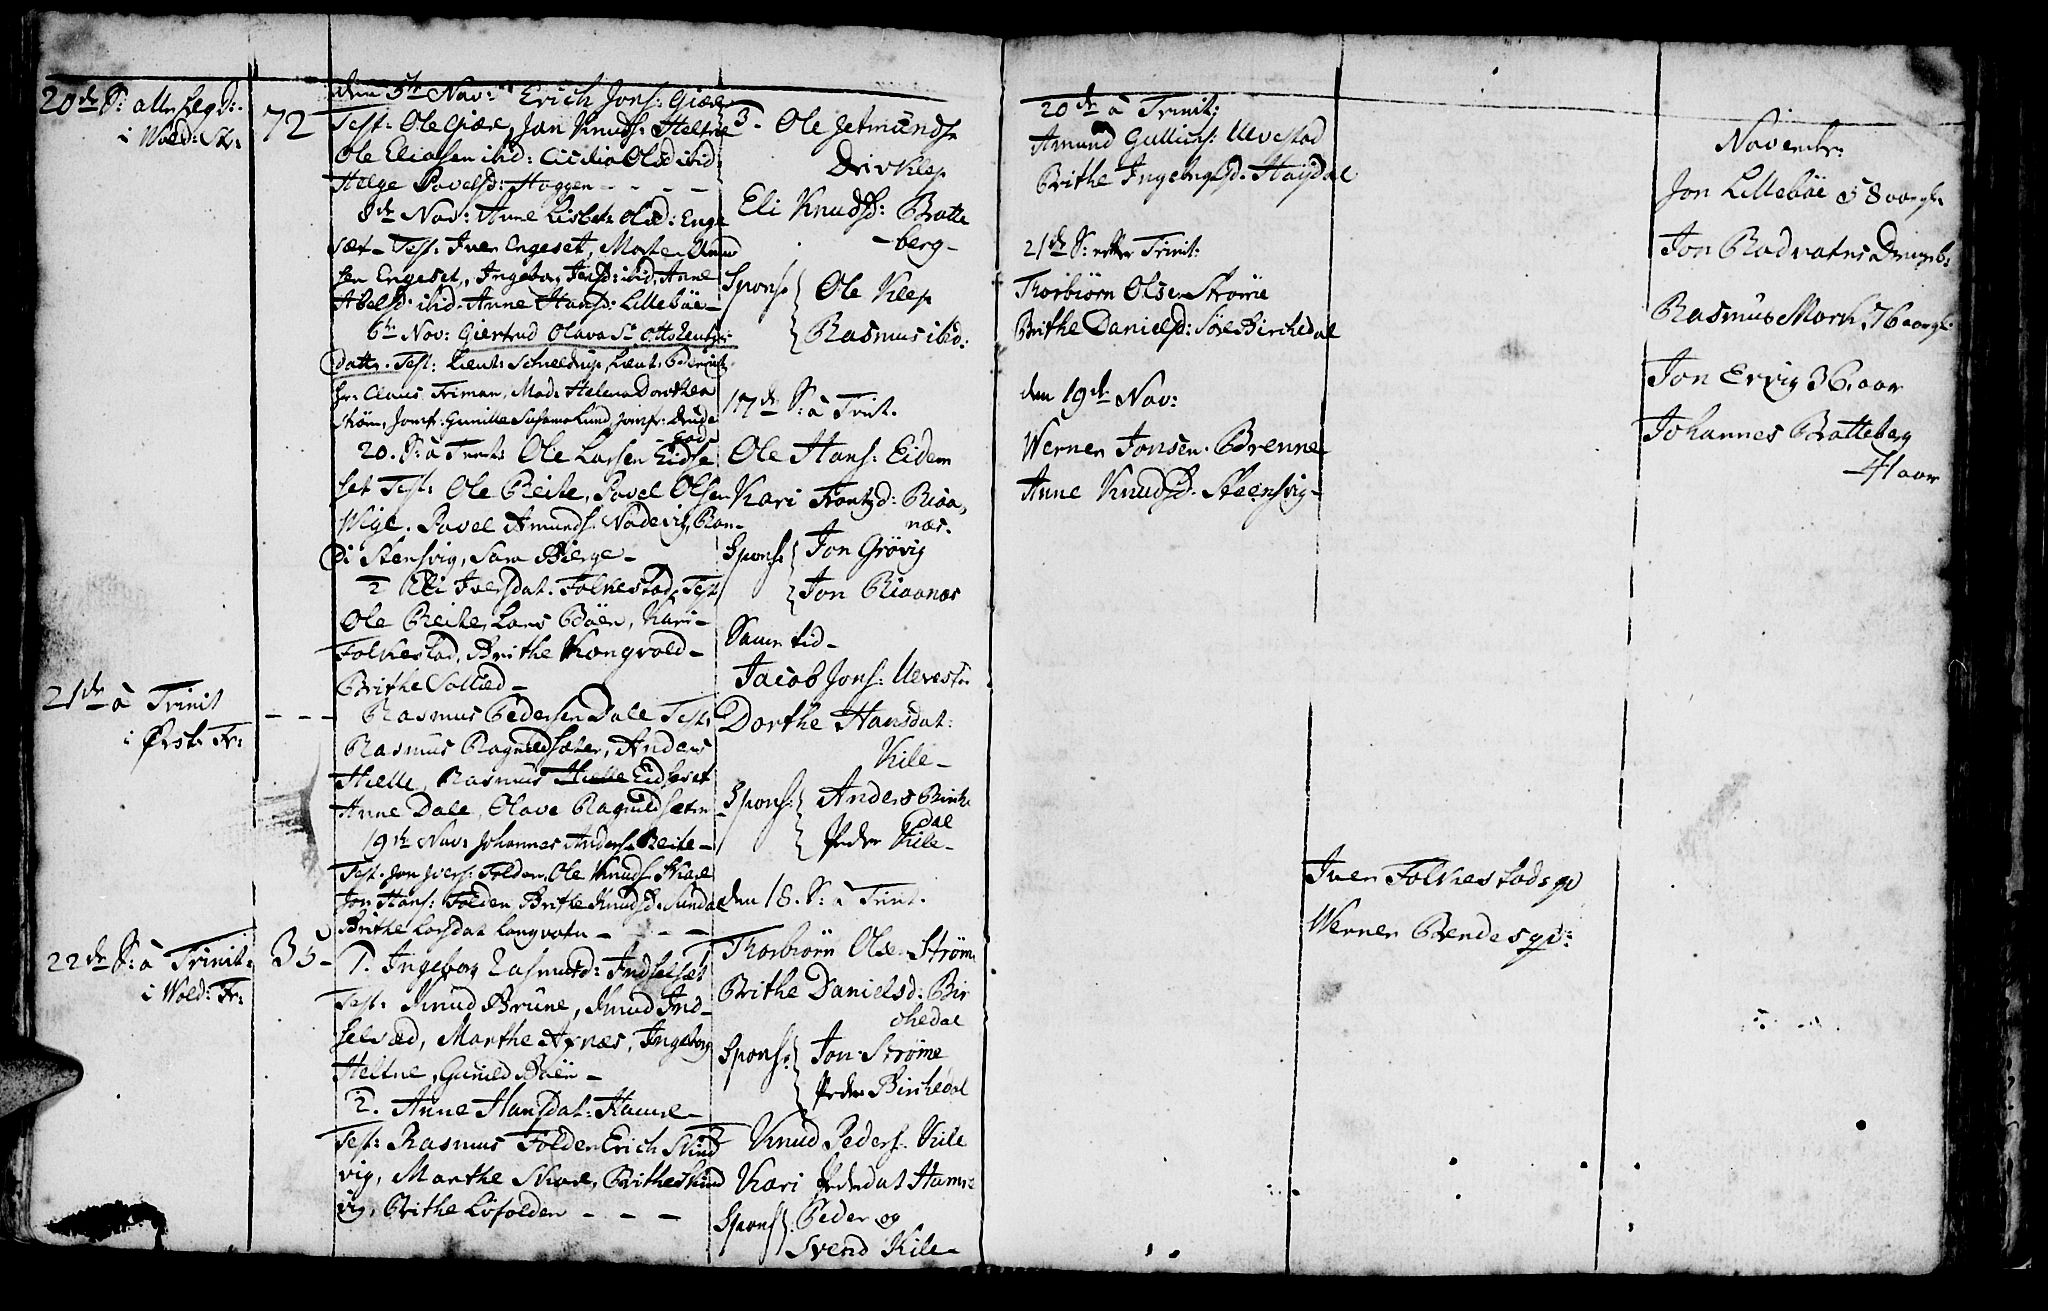 20de S: alle Legd:
i Wold: Kr:
72
21de à Trinit
i Ørst: Kr:
22de S: à Trinit:
i Wold: Kr:
33-
den 5te Nov: Erich Jons: Giær
Test: Ole Giær, Jon Knuds: Heltne
Ole Eliasen ibid: Cicilia Olsd ibid:
Helge Povelsd: Hoggen
8de Nov: Anne Lisbet Olsd: Enge
sæt- Test: Iver Engeset, Morten
sen Engeset, Ingebor Jensd: ibid, Anne
Abelsd: ibid. Anne Hansd: Lillebøe-
6te Nov: Giertrud Olava Sr Ottesens
Dattr. Test: Lieut: Schieldrup, Lieut:
Hr: Claus Friman, Mad: Helena Dorothea
Strøm, Jomfr: Gunilla Susanna Lund, Jomfr:
20. S: à Trinit: Ole Larsen Eidse
set Test: Ole Reite, Povel Olsen
Wige. Povel Amunds: Nødevig, Ran-
di Stensvig, Sara Bierge-
2 Eli Iversdat. Folkestad, Test
Ole Reite, Lars Bøen, Kari-
Folkestad, Brithe Kongvold-
Brithe Sollied-
Rasmus Pedersen Dale Test:
Rasmus Ragnildsæter, Anders
Hielle, Rasmus Hielle Eidseset
Anne Dale, Olave Ragnildsætr
19de Nov: Johannes Anders: Reite-
Test: Jon Ivers: Folden, Ole Knuds: Skare
Jon Hans: Folden Brithe Knudsd: Sundal
Brithe Larsdat Langvatn-
1. Ingeborg Rasmusd: Indselsæt
Test: Knud Brune, Knud Ind-
selsæd, Marthe Axnæs, Ingeborg
Heltne, Gunild Bøen-
2. Anne Hansdat: Hamre-
Test: Rasmus Folden Erich Skind
vig, Marthe Skare, Brithe Skind
vig, Brithe Løfolden
3. Ole Jetmunds:
Drirklep
Eli Knudsd: Batte
-berg-
Spons: Ole Klep
Rasmus ibid:
17de S: à Trint.
Ole Hans: Eidem
Kari Frantzd: Riaa,
næs.
Spons: Jon Grøvig
Jon Riaanæs
Samme tid-
Jacob Jons: Ulvest:
Dorthe Hansdat:
Kile-
Spons: Anders Birke
dal
Peder Kile-
den 18. S: à Trint.
Thorbiørn Olsen Strøm
Brithe Danielsd: Bir
chedal
Spons: Jon Strøme
Peder Birchedal
Knud Peders: Kile
Kari Pedersdat Hamre
Spons: Peder og
Svend Kile-
20de à Trinit:
Amund Gullichs: Ulvestad
Brithe Ingebrigtsd. Høydal
21de S: efter Trinit:
Thorbiørn Olsen Strøme
Brithe Danielsd: Søre Birchedal
den 19de Nov:
Werner Jonsen Brenne
Anne Knudsd. Steensvig-
Iver Folkestads
Werner Bendes
Novembr:
Jon Lillebøe 58 aar gl:
Jon Rødvatns
Rasmus Mork, 76 aar gl:
Jon Ervig 36, aar
Johannes Batteberg
41 aar